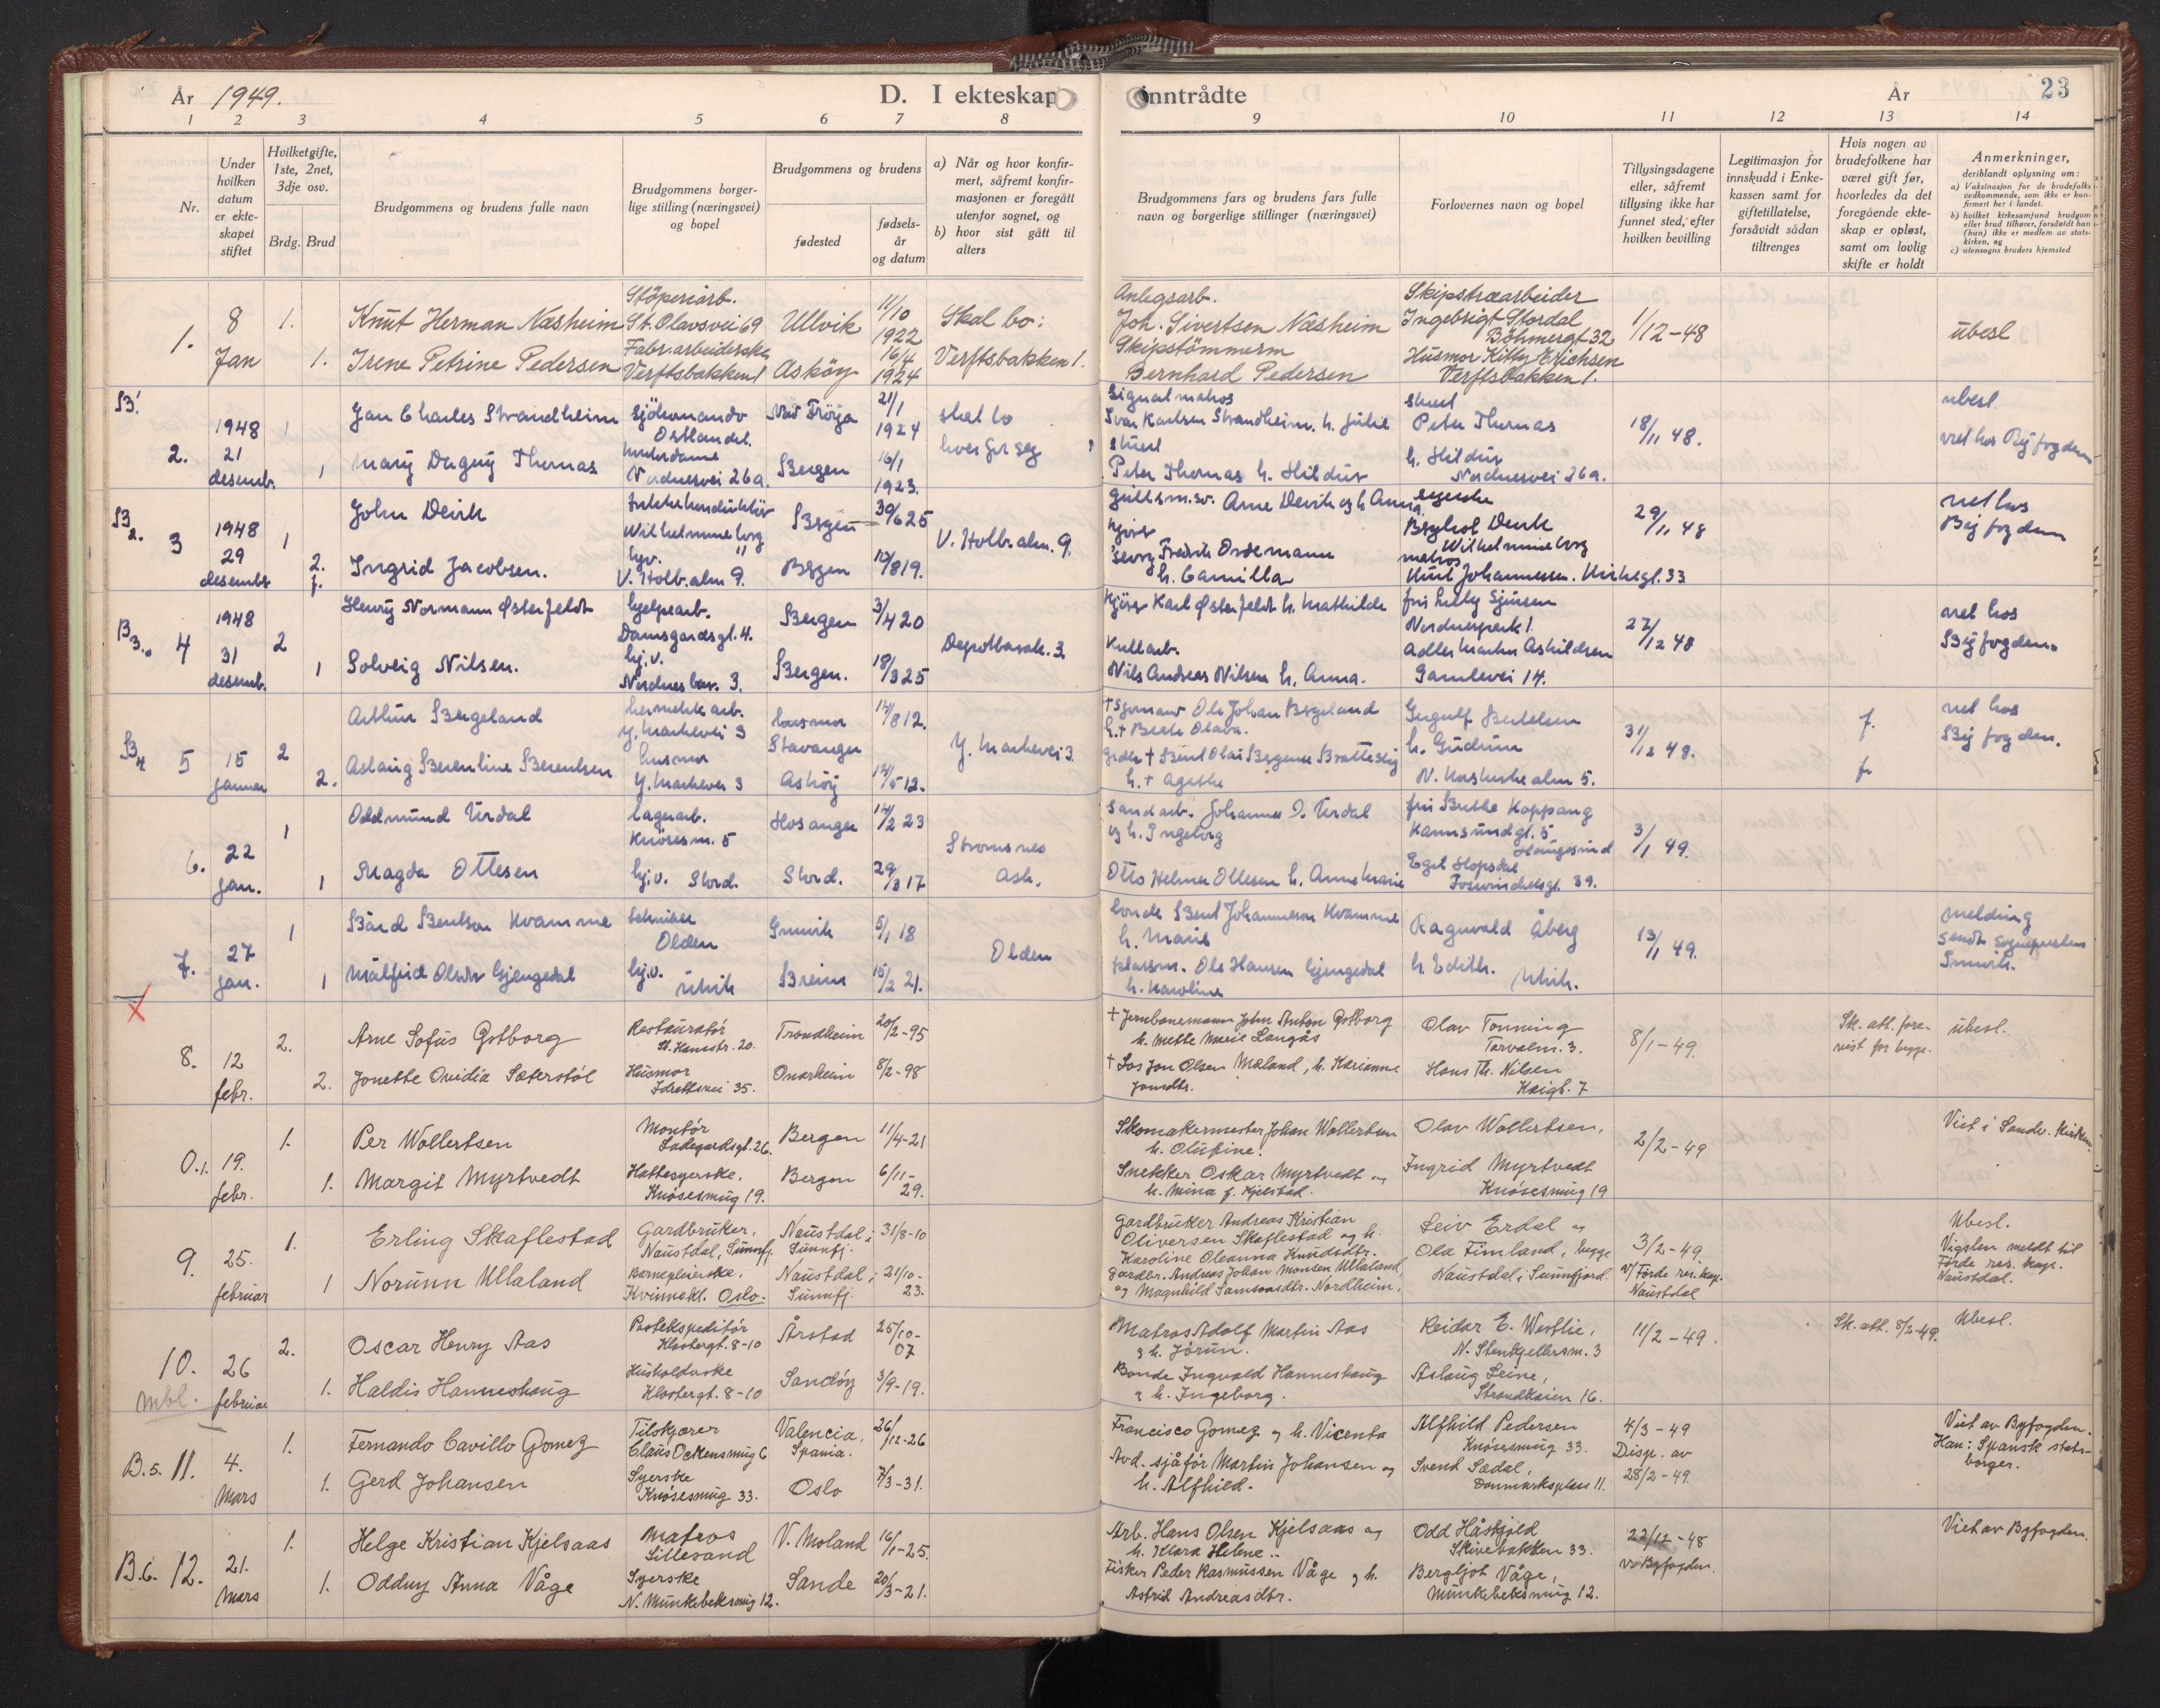 År 1949.
D. I ekteskap inntrådte
År
23
1 2 3 4 5 6 7 8 9 10 11 12 13 14
Nr.
Under hvilken datum er ekteskapet stiftet
Hvilket gifte, 1ste, 2net, 3dje osv.
Brdg. Brud
Brudgommens og brudens fulle navn
Brudgommens borgerlige stilling (næringsvei) og bopel
Brudgommens og brudens
fødested
fødselsår og datum
a) Når og hvor konfirmert, såfremt konfirmasjonen er foregått utenfor sognet, og
b) hvor sist gått til alters
Brudgommens fars og brudens fars fulle navn og borgerlige stillinger (næringsvei)
Forlovernes navn og bopel
Tillysingsdagene eller, såfremt tillysing ikke har funnet sted, efter hvilken bevilling
Legitimasjon for innskudd i Enkekassen samt for giftetillatelse, forsåvidt sådan tiltrenges
Hvis nogen av brudefolkene har været gift før, hvorledes da det foregående ekteskap er opløst, samt om lovlig skifte er holdt
Anmerkninger, deriblandt oplysning om:
a) Vaksinasjon for de brudefolks vedkommende, som ikke er konfirmert her i landet.
b) hvilket kirkesamfund brudgom eller brud tilhører, forsåvidt han (hun) ikke er medlem av statskirken, og
c) utensogns bruders hjemsted
1. 8 Jan
1. Knut Herman Næsheim Støperiarb. St. Olavsvei 69 Ullvik 11/10 1922 Skal bo:
1. Irene Petrine Pedersen Fabr.arbeiderske Verftsbakken 1 Askøy 16/4 1924 Verftsbakken 1.
Anlegsarb. Joh. Sivertsen Næsheim
Skipstømmerm Bernhard Pedersen
Skipstræarbeider Ingebrigt Stordal Böhmergt 32
Husmor Kitty Erichsen Verftsbakken 1.
1/12-48
ubesl
B1 2. 1948 21 desemb.
1 Jan Charles Strandheim Sjökomando Östlandet. Nord Fröya 21/1 1924 skal bo
1 Mary Dagny Thomas Nordnesvei 26a. Bergen 16/1 1923. hver for seg
Signalmatros Ivar Karlsen Strandheim. h. Julie
stuert Peter Thomas h. Hildur
stuert Peter Thomas
h. Hildur Nordnesvei 26a.
18/11 48.
ubesl
viet hos Byfogden
B2. 3 1948 29 desember
1 John Deirk Wilhelmineborg Bergen 30/6 25
2. f. Ingrid Jacobsen. hjv. V. Holb.alm 9. Bergen 12/8 19. V. Holb.alm. 9.
gullsm.sv. Arne Deirk og h. Anna
Fredrik Ordemann h. Camilla
syerske Bergliot Deirk Wilhelmineborg
matros Knut Johannessen. Kirkegt. 33
29/11 48
viet hos Byfogden
B3. 4 1948 31 desemb.
2 Henry Normann Østerfeldt hjelpearb. Damsgardsgt. 4. Bergen 3/4 20
1 Solveig Nilsen. hj.v. Nordnesbav. 3. Bergen. 18/3 25
Karl Østerfeldt h. Mathilde
Kullarb. Nils Andreas Nilsen h. Anna.
fru Lully Sjursen Nordnespark 1.
Askildsen Gamlevei 14.
27/12 48
viet hos Byfogden.
B4 5 15 januar
2 Arthur Bergeland hermetikkarb. Y. Markevei 3 Stavanger 14/8 12.
2. Aslaug Berentine Berentsen husmor Y. Markevei 3 Askøy 14/5 12. Y. Markevei 3
† Ole Johan Bergeland h. †
† Bernt Olai h. † Agathe
Ingulf Bertelsen h. Gudrun
31/12 48.
f.
fr
viet hos Byfogden.
6. 22 jan.
1 Oddmund Urdal lagerarb. Knösesm. 5 Hosanger 14/2 23 Stromsnes
1 Magda Ottesen hj.v. Stord. Stord. 29/3 17 Ask.
Sandarb. Johannes O. Urdal og h. Ingeborg
Otto Helmer Ottesen h. Anne Marie
fru Berthe Koppang Karmsundgt. 5 Haugesund
Egil Hopsdal 39.
3/1 49.
7. 27 jan.
1 Bård Bentson Kvamme Olden Gimvik 5/1 18
1 Målfrid Olsdtr Gjengedal hj.v. Utvik Breim 15/2 21. Olden
bonde Bent Johanneson Kvamme h. Marie
plassm. Ole Hansen Gjengedal h. Karoline
Ragnvald Åberg
h Edith. Utvik.
13/1 49.
melding sendt sognepresten
X
8. 12 febr.
2. Arne Sofus Østborg Restauratør St. Hansstr. 20. Trondheim 20/2-95
2. Jonette Ovidia Sæterstøl Husmor Idrettsvei 35. Onarheim 8/2-98
† Jernbanemann John Anton Østborg h. Mette Marie Langås
† Los Jon Olsen Møland, h. Karianne Jonsdtr.
Olav Tonning Torvalm. 3.
Hans Th. Nilsen Haigt. 7
8/1-49.
Sk. att. forevist for begge.
ubesl.
0.1. 19. febr.
1. Per Wollertsen Montør Ladegardsgt. 26. Bergen 11/4-21
1. Margit Myrtvedt Hattesyerske, Knøsesmug 19. Bergen 6/11-29.
Skomakermester Johan Wollertsen h. Olufine.
Snekker Oskar Myrtvedt og h. Mina f. Kjelstad.
Olav Wollertsen,
Ingrid Myrtvedt Knøsesmug 19
2/2-49
Viet i Sandv. Kirken.
9. 25. februar
1. Erling Skaflestad Gardbruker, Naustdal, Sunnfj. Naustdal i Sunnfj. 31/8-10
1 Norunn Ullaland Barnepleierske, Kvinnekl. Oslo. Naustdal i Sunnfj. 21/10-23.
Gardbruker Andreas Kristian Oliversen Skaflestad og h. Karoline Oleanna Knudsdtr.
Gardbr. Andreas Johan Monsen Ullaland, og Magnhild Samsonsdtr. Nordheim,
Leiv Erdal og Ola Fimland, begge Naustdal i Sunnfjord.
3/2-49 v/ Førde res. kap. Naustdal
Ubesl. Vigslen meldt til Førde res. kap. Naustdal.
10. mbl. 26 februar
2. Oscar Henry Aas Postekspeditør Klostergt. 8-10 Årstad 25/10-07
1. Haldis Hanneshaug Husholderske Klostergt. 8-10 Sandøy 3/9-19.
Matros Adolf Martin Aas og h. Jörun.
Bonde Ingvald Hanneshaug og h. Ingeborg.
Reidar E. Westlie, N. Stenkjellersm. 3
Aslaug Leine, Strandkaien 16.
11/2-49.
Sk. att. 8/2-49.
Ubesl.
B.5. 11. 4. Mars
1. Fernando Cavillo Gomez Tilskjærer Claus Ockensmug 6 Valencia, Spania. 26/12-26
1. Gerd Johansen Syerske Knøsesmug 33. Oslo 7/3-31.
Francisco Gomez og h. Vicenta
Avd. sjåfør Martin Johansen og h. Alfhild.
Alfhild Pedersen Knøsesmug 33.
Svend Sædal, Danmarksplass 11.
4/3-49 Disp. av 28/2-49.
Viet av Byfogden. Han: Spansk statsborger.
B.6. 12. 21. Mars
1. Helge Kristian Kjelsaas Matros Lillesand V. Moland 16/1-25.
1. Oddny Anna Våge Syerske N. Munkebeksmug 12. Sande 20/3-21.
Arb. Hans Olsen Kjelsaas og h. Klara Helene..
Fisker Peder Rasmussen Våge og h. Astrid Andreasdtr.
Odd Håskjold Skivebakken 33.
Bergljot Våge, Munkebeksmug 12.
22/12-48 v. Byfogden.
Viet av Byfogden.